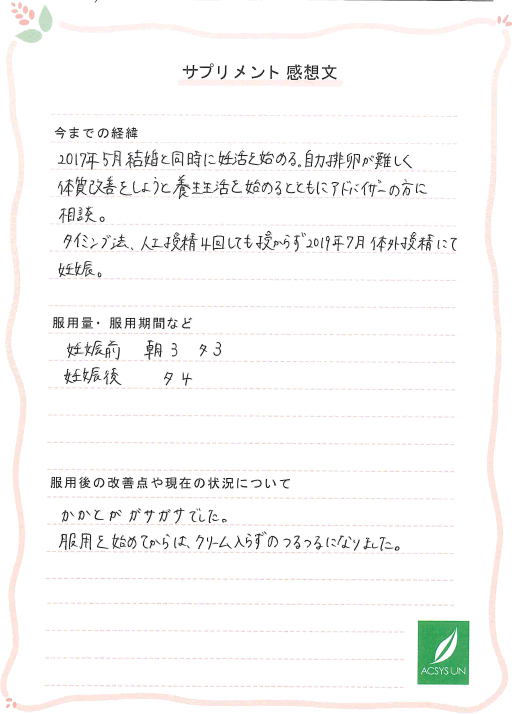 サプリメント 感想文
今までの経緯
2017年5月結婚と同時に妊活を始める。自力排卵が難しく
体質改善をしようと養生生活を始めるとともにアドバイザーの方に
相談。
タイミング法、人工授精4回しても授からず2019年7月体外授精にて
妊娠。
服用量・服用期間など
妊娠前 朝3 夕3
妊娠後 夕4
服用後の改善点や現在の状況について
かかとがガサガサでした。
服用を始めてからは、クリーム入らずのつるつるになりました。
ACSYS UN